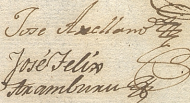 Jose Arellano
José Felix
Aramburu